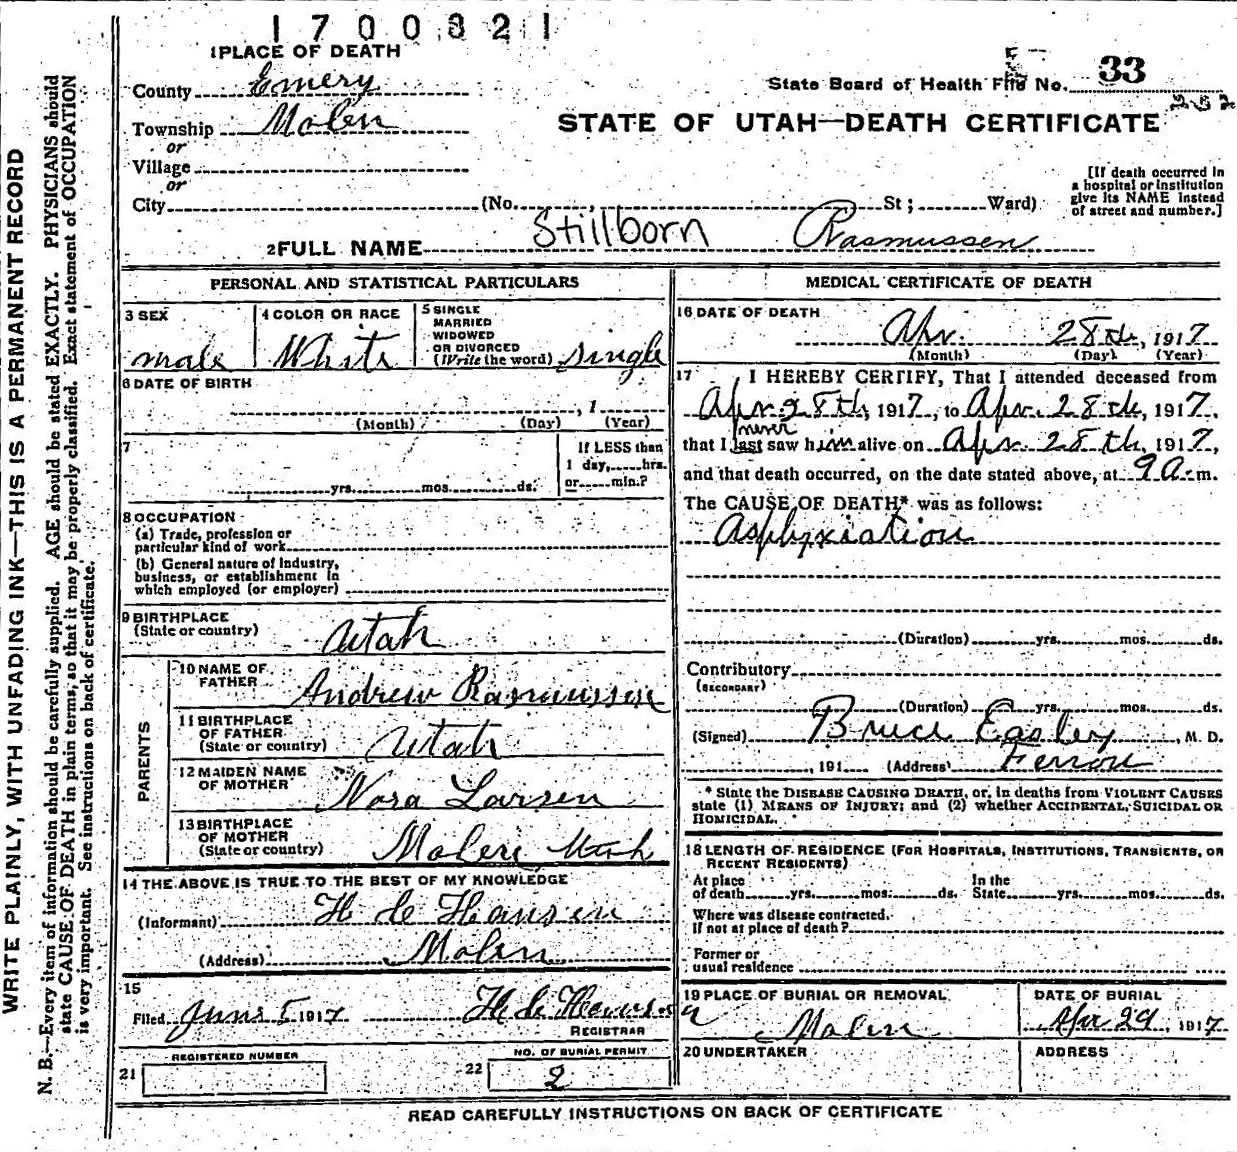 1700821
1 PLACE OF DEATH
County Emery
State Board of Health File No. 33
252
Township Molen
STATE OF UTAH—DEATH CERTIFICATE
or
Village
or
City (No. St; Ward)
[If death occurred in
a hospital or institution
give its NAME instead
of street and number.]
2 FULL NAME Stillborn Rasmussen
PERSONAL AND STATISTICAL PARTICULARS
3 SEX
male
4 COLOR OR RACE
White
5 SINGLE
MARRIED
WIDOWED
OR DIVORCED
(Write the word) single
6 DATE OF BIRTH
, 1
(Month) (Day) (Year)
7
yrs. mos. ds.
If LESS than
1 day, hrs.
or min.?
8 OCCUPATION
(a) Trade, profession or
particular kind of work
(b) General nature of industry,
business, or establishment in
which employed (or employer)
9 BIRTHPLACE
(State or country) Utah
PARENTS
10 NAME OF
FATHER Andrew Rasmussen
11 BIRTHPLACE
OF FATHER
(State or country) Utah
12 MAIDEN NAME
OF MOTHER Nora Larsen
13 BIRTHPLACE
OF MOTHER
(State or country) Molen Utah
14 THE ABOVE IS TRUE TO THE BEST OF MY KNOWLEDGE
(Informant) H de Hansen
(Address) Molen
15
Filed June 5 1917 H de Hansen
REGISTRAR
REGISTERED NUMBER
21
NO. OF BURIAL PERMIT
22 2
MEDICAL CERTIFICATE OF DEATH
16 DATE OF DEATH
Apr. 28th, 1917
(Month) (Day) (Year)
17 I HEREBY CERTIFY, That I attended deceased from
Apr 28th, 1917, to Apr. 28th, 1917.
never
that I last saw him alive on Apr. 28th, 1917,
and that death occurred, on the date stated above, at 9 a. m.
The CAUSE OF DEATH* was as follows:
Asphyxiation
(Duration) yrs. mos. ds.
Contributory
(SECONDARY)
(Duration) yrs. mos. ds.
(Signed) Bruce Easley, M. D.
, 191 (Address) Ferron
* State the DISEASE CAUSING DEATH, or, in deaths from VIOLENT CAUSES
state (1) MEANS OF INJURY; and (2) whether ACCIDENTAL, SUICIDAL OR
HOMICIDAL.
18 LENGTH OF RESIDENCE (FOR HOSPITALS, INSTITUTIONS, TRANSIENTS, OR
RECENT RESIDENTS)
At place In the
of death yrs. mos. ds. State yrs. mos. ds.
Where was disease contracted.
If not at place of death?
Former or
usual residence
19 PLACE OF BURIAL OR REMOVAL
Molen
DATE OF BURIAL
Apr 29, 1917
20 UNDERTAKER
ADDRESS
READ CAREFULLY INSTRUCTIONS ON BACK OF CERTIFICATE
WRITE PLAINLY, WITH UNFADING INK—THIS IS A PERMANENT RECORD
N. B.—Every item of information should be carefully supplied. AGE should be stated EXACTLY. PHYSICIANS should
state CAUSE OF DEATH in plain terms, so that it may be properly classified. Exact statement of OCCUPATION
is very important. See instructions on back of certificate.